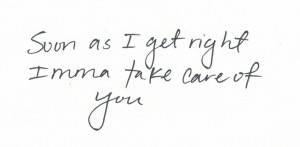 Soon as I get right
Imma take care of
you